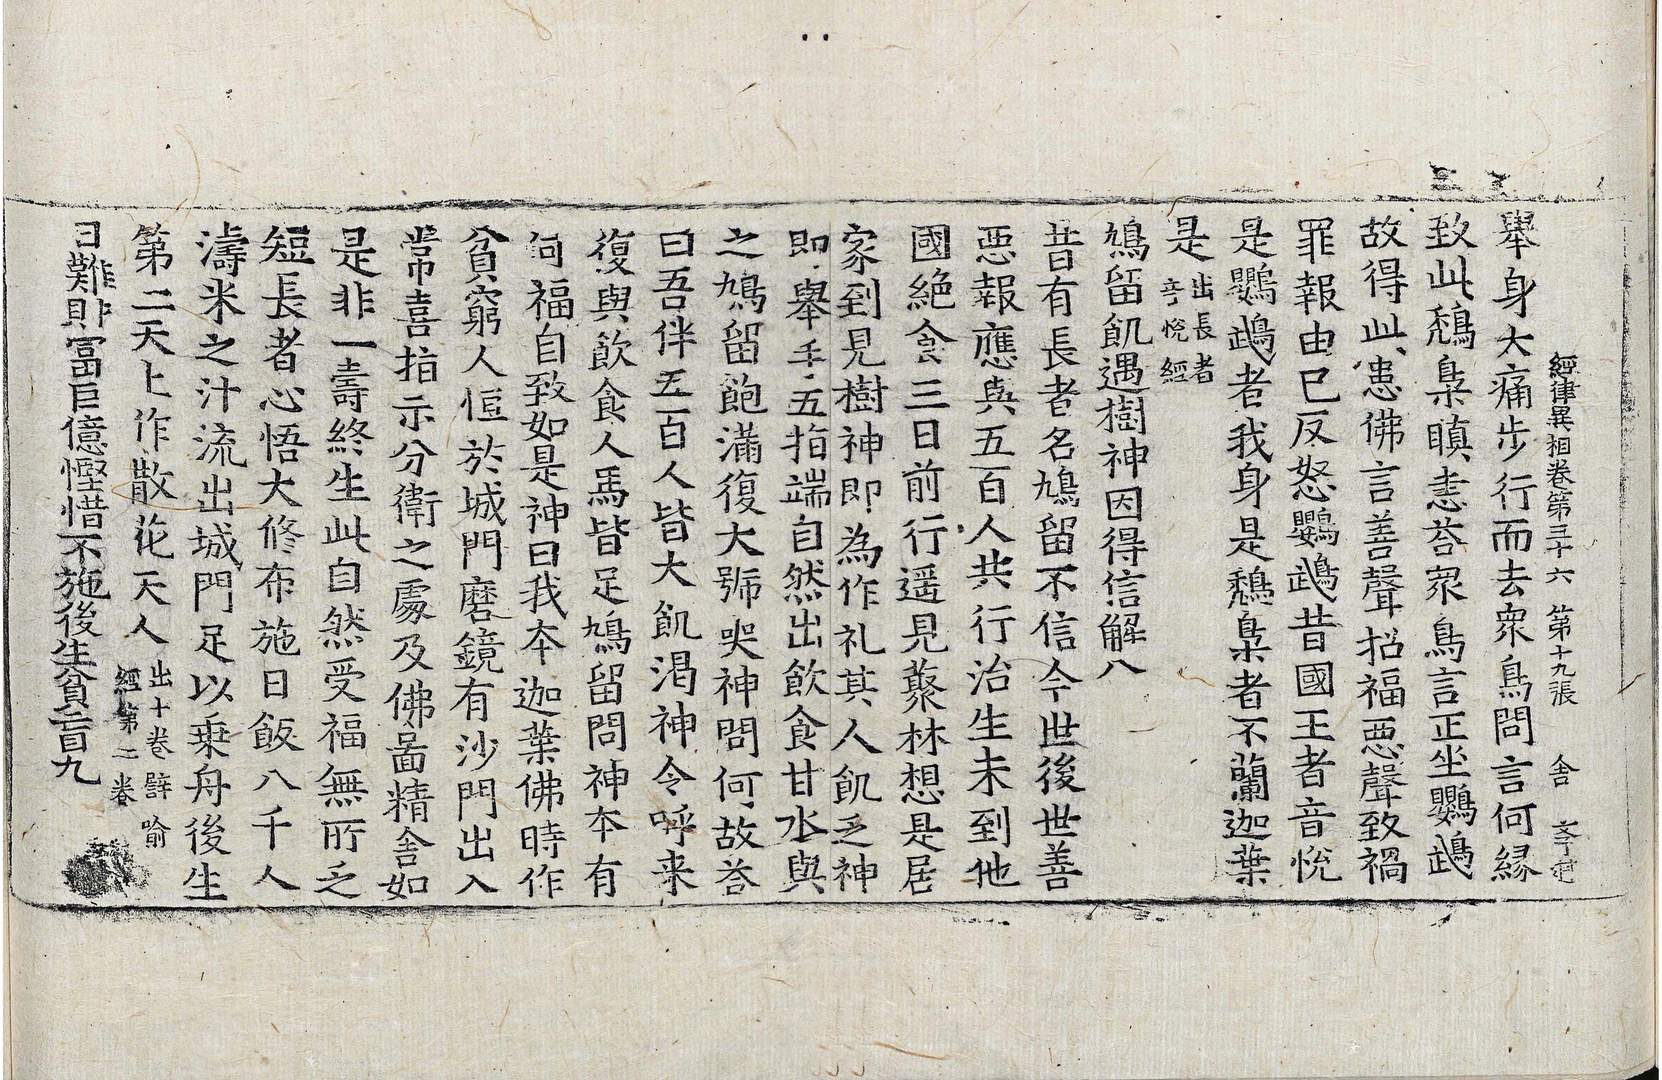 經律異相卷第三十六 第十九張 舍
舉身大痛步行而去衆鳥問言何縁
致此鵚梟瞋恚荅衆鳥言正坐鸚鵡
故得此患佛言善聲招福惡聲致禍
罪報由已反怒鸚鵡昔國王者音恱
是鸚鵡者我身是鵚梟者不蘭迦葉
是 出長者音恱經
鳩留飢遇樹神因得信解八
昔有長者名鳩留不信今世後世善
惡報應與五百人共行治生未到他
國絶食三日前行遥見藂林想是居
家到見樹神即為作礼其人飢乏神
即舉手五指端自然出飲食甘水與
之鳩留飽滿復大號哭神問何故荅
曰吾伴五百人皆大飢渇神令呼来
復與飲食人馬皆足鳩留問神本有
何福自致如是神曰我本迦葉佛時作
貧窮人恒於城門磨鏡有沙門出入
常喜指示分衛之處及佛啚精舎如
是非一壽終生此自然受福無所乏
短長者心悟大修布施日飯八千人
濤米之汁流出城門足以乗舟後生
第二天上作散花天人 出十卷譬喻經第二卷
日難財冨巨億慳惜不施後生貧盲九